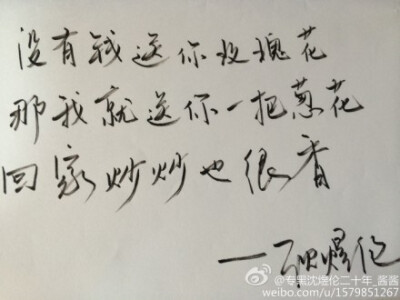 没有钱送你玫瑰花
那我就送你一把葱花
回家炒炒也很香
@专果沈煜伦二十年_酱酱
weibo.com/u/1579851267